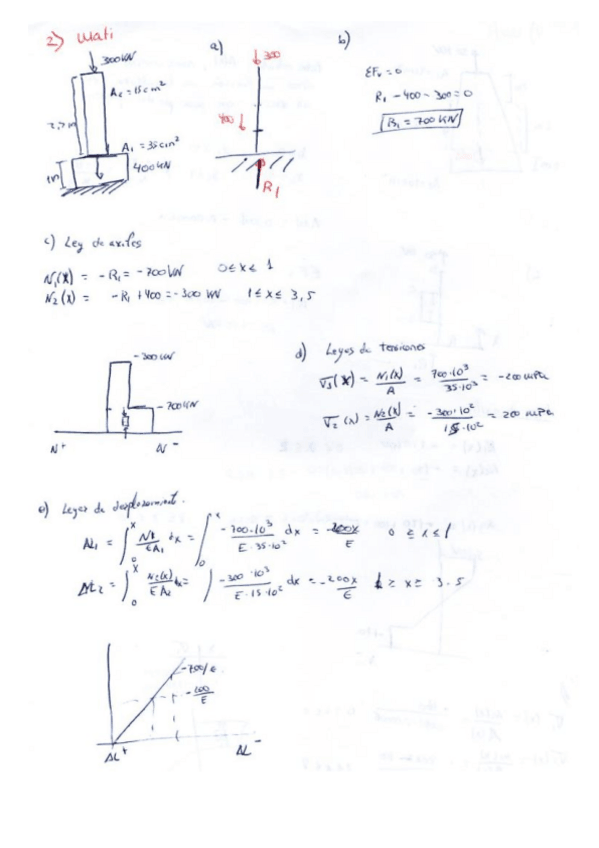 2) Mati
300 kN
A₂ = 15 cm²
2,5 m
A₁ = 35 cm²
400 kN
1m
a)
300
400
R₁
b)
ΣFᵥ = 0
R₁ - 400 - 300 = 0
R₁ = 700 KN
c) Ley de axiles
N₁(x) = -R₁ = -700 kN 0 ≤ x ≤ 1
N₂(x) = -R₁ + 400 = -300 kN 1 ≤ x ≤ 3,5
-300 kN
-700 kN
N⁺ N⁻
d) Leyes de tensiones
σ₁(x) = N₁(x)/A = 700·10³/35·10³ = -200 mPa
σ₂(x) = N₂(x)/A = -300·10²/15·10² = 200 mPa
e) Leyes de desplazamiento.
ΔL₁ = ∫₀ˣ N₁/EA₁ dx = ∫₀ˣ -700·10³/E·35·10² dx = -200x/E 0 ≤ x ≤ 1
ΔL₂ = ∫₀ˣ N₂(x)/EA₂ dx = ∫ -300·10³/E·15·10² dx = -200x/E 1 ≥ x ≥ 3.5
-700/E
-200/E
ΔL⁺ ΔL⁻